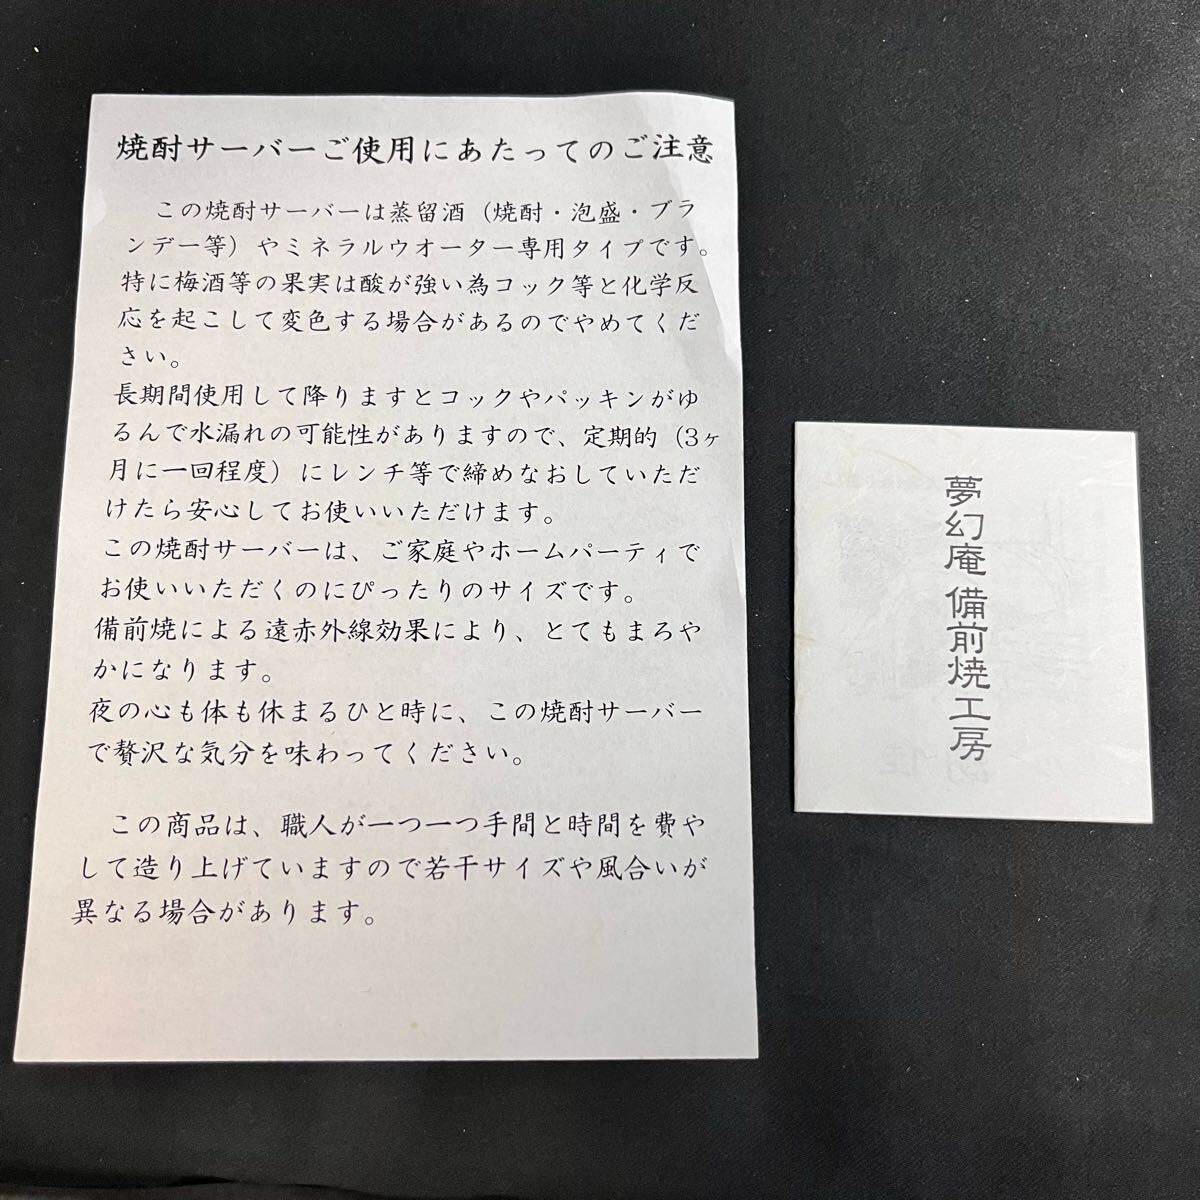 焼酎サーバーご使用にあたってのご注意
この焼酎サーバーは蒸留酒（焼酎・泡盛・ブラ
ンデー等）やミネラルウオーター専用タイプです。
特に梅酒等の果実は酸が強い為コック等と化学反
応を起こして変色する場合があるのでやめてくだ
さい。
長期間使用して降りますとコックやパッキンがゆ
るんで水漏れの可能性がありますので、定期的（3ヶ
月に一回程度）にレンチ等で締めなおしていただ
けたら安心してお使いいただけます。
この焼酎サーバーは、ご家庭やホームパーティで
お使いいただくのにぴったりのサイズです。
備前焼による遠赤外線効果により、とてもまろや
かになります。
夜の心も体も休まるひと時に、この焼酎サーバー
で贅沢な気分を味わってください。
この商品は、職人が一つ一つ手間と時間を費や
して造り上げていますので若干サイズや風合いが
異なる場合があります。
夢幻庵 備前焼工房